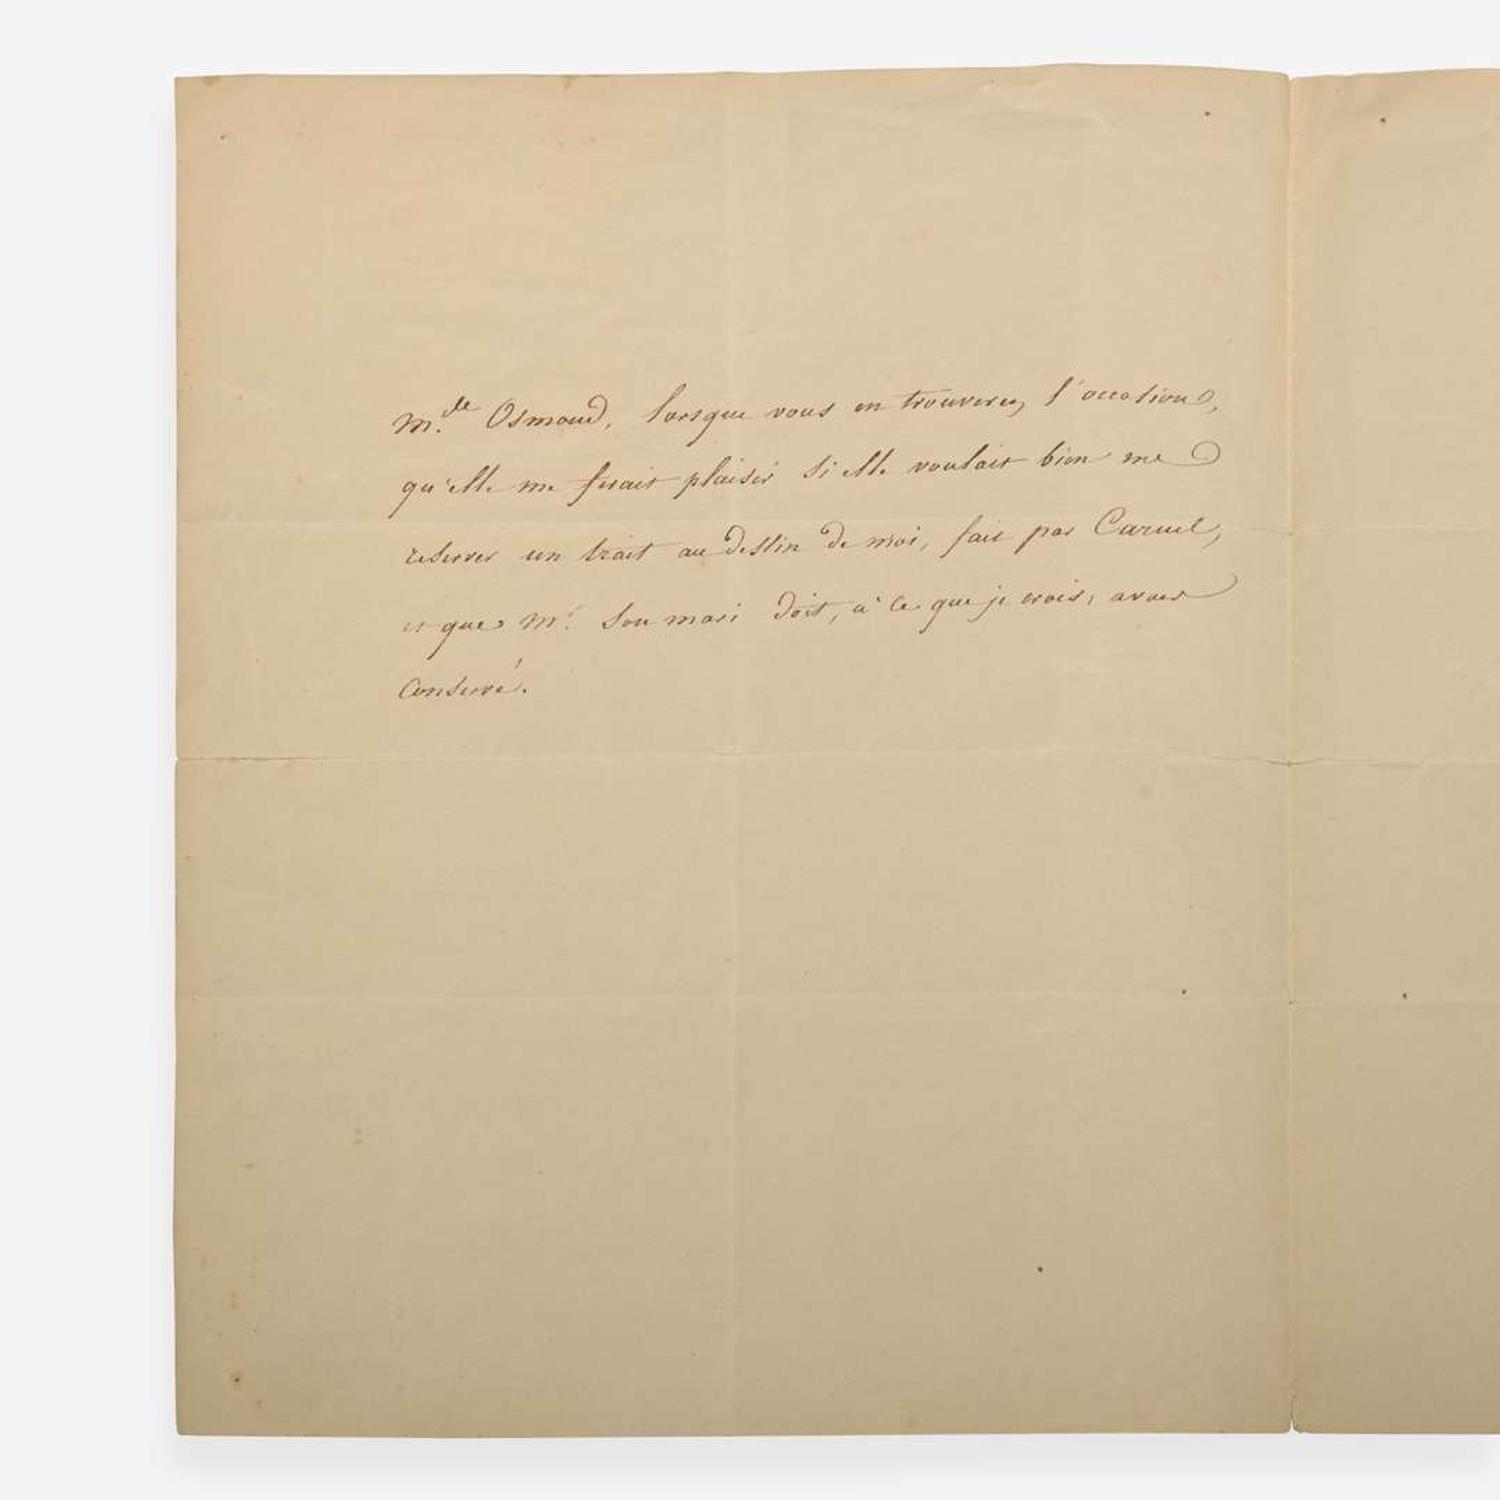 M.de Osmond, lorsque vous en trouverez l'occasion,
qu'elle me ferait plaisir si elle voulait bien me
reserver un trait au dessin de moi, fait par Caruel,
et que Mr. Son mari doit, à ce que je crois, avoir
Conservé.